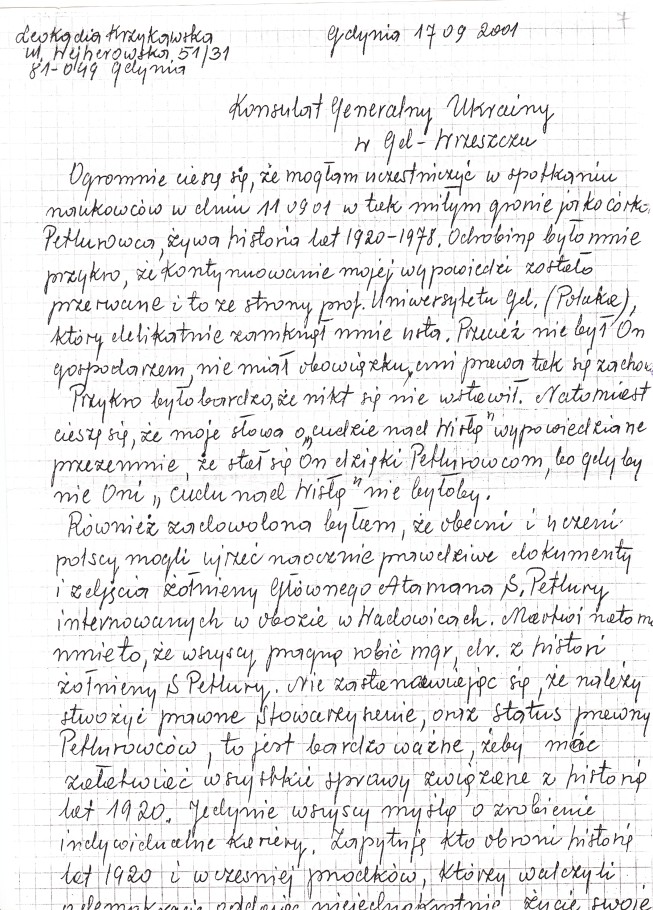 7
Leokadia Krzykawska
ul. Wejherowska 51/31
81-049 Gdynia
Gdynia 17 09 2001
Konsulat Generalny Ukrainy
w Gd-Wrzeszczu
Ogromnie cieszę się, że mogłam uczestniczyć w spotkaniu
naukowców w dniu 11 09 01 w tak miłym gronie jako córka
Petlurowca, żywa historia lat 1920-1978. Odrobinę było mnie
przykro, że kontynuowanie mojej wypowiedzi zostało
przerwane i to ze strony prof. Uniwersytetu Gd. (Polaka),
który delikatnie zamknął mnie usta. Przecież nie był On
gospodarzem, nie miał obowiązku, ani prawa tak się zachow
Przykro było bardzo, że nikt się nie wstawił. Natomiast
cieszę się, że moje słowa o „cudzie nad Wisłą" wypowiedziane
przezemnie, że stał się On dzięki Petlurowcom, bo gdyby
nie Oni „cudu nad Wisłą" nie byłoby.
Również zadowolona byłam, że obecni i uczeni
polscy mogli ujrzeć naocznie prawdziwe dokumenty
i zdjęcia żołnierzy Głównego Atamana S. Petlury
internowanych w obozie w Wadowicach. Martwi natom
mnie to, że wszyscy pragną robić mgr, dr. z histori
żołnierzy S Petlury. Nie zastanawiając się, że należy
stwożyć prawne Stowarzyszenie, oraz status prawny
Petlurowców, to jest bardzo ważne, żeby móc
załatwiać wszystkie sprawy związane z historią
lat 1920. Jedynie wszyscy myślą o zrobienie
indywidualne kariery. Zapytuję kto obroni historię
lat 1920 i wcześniej przodków, którzy walczyli
oddając niejednokrotnie życie swoje